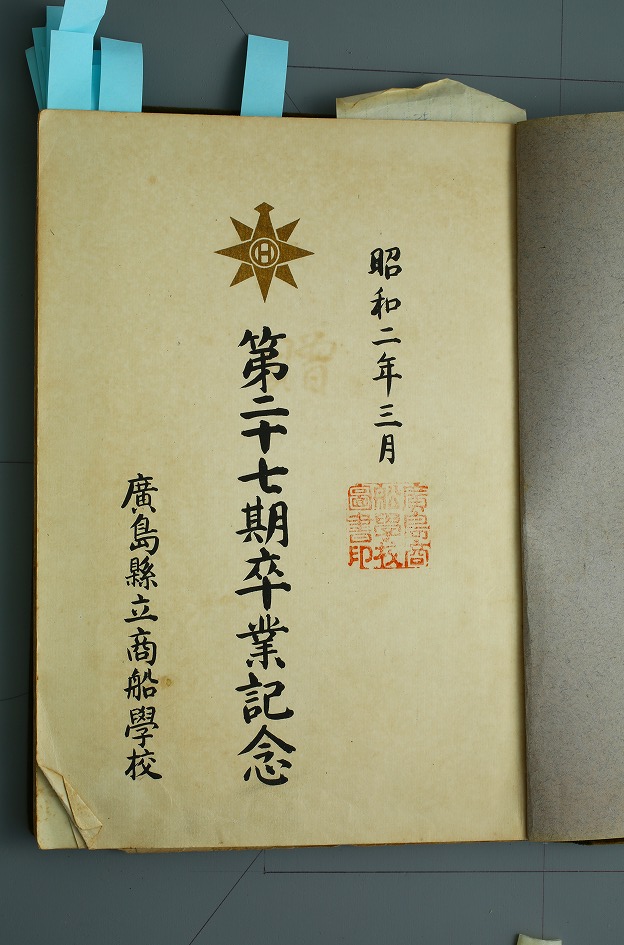 昭和二年三月
廣島商
船學校
圖書印
第二十七期卒業記念
廣島縣立商船學校
H